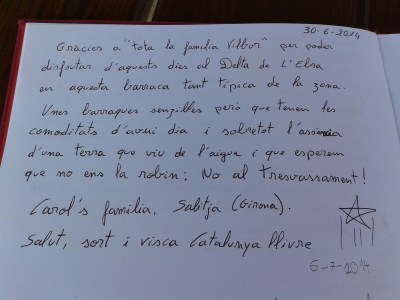 30-6-2014
Gràcies a "tota la família Vilbor" per poder
disfrutar d'aquests dies al Delta de L'Ebra
en aquesta barraca tant típica de la zona.
Unes barraques senzilles però que tenen les
comoditats d'avui dia i sobretot l'assència
d'una terra que viu de l'aigua i que esperem
que no ens la robin: No al tresvassament!
Carol's familia, Salitja (Girona).
Salut, sort i visca Catalunya lliure
6-7-2014